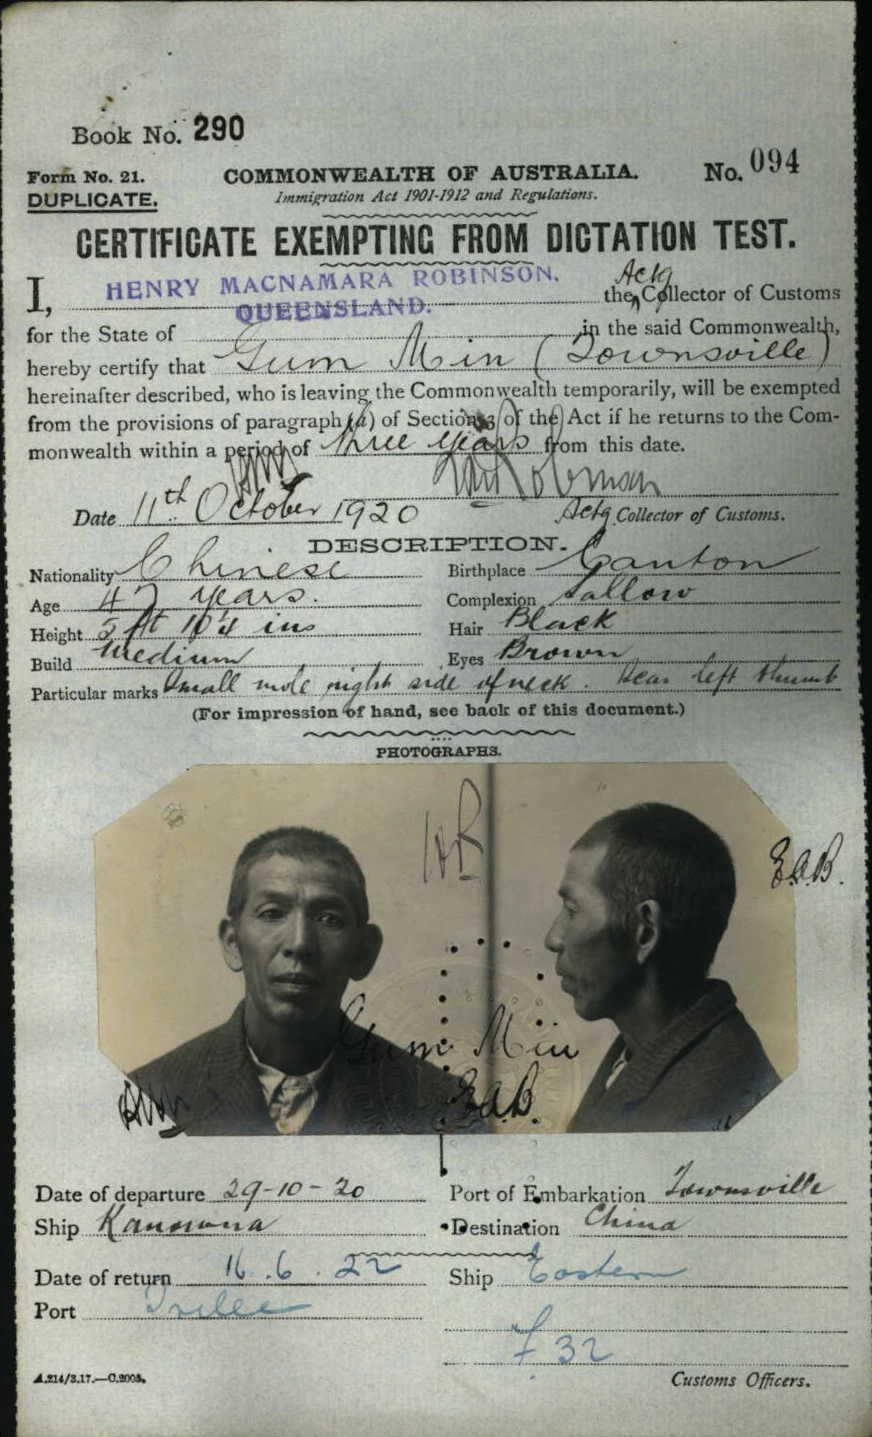 Book No. 290
Form No. 21. COMMONWEALTH OF AUSTRALIA. No. 094
DUPLICATE. Immigration Act 1901-1912 and Regulations.
CERTIFICATE EXEMPTING FROM DICTATION TEST.
I, HENRY MACNAMARA ROBINSON. the Actg Collector of Customs
for the State of QUEENSLAND. in the said Commonwealth,
hereby certify that Gum Min (Townsville)
hereinafter described, who is leaving the Commonwealth temporarily, will be exempted
from the provisions of paragraph (a) of Section 3 of the Act if he returns to the Com-
monwealth within a period of three years from this date.
Date 11th October 1920 Actg Collector of Customs.
DESCRIPTION.
Nationality Chinese Birthplace Canton
Age 47 years. Complexion Sallow
Height 5 ft ins Hair Black
Build Medium Eyes Brown
Particular marks Small mole right side of neck. Scar left thumb
(For impression of hand, see back of this document.)
PHOTOGRAPHS.
E.A.B.
Gum Min
E.A.B.
Date of departure 29-10-20 Port of Embarkation Townsville
Ship Kanowna Destination China
Date of return 16.6.22 Ship Eastern
Port Tville
F 32
A.214/3.17.—C.2003. Customs Officers.